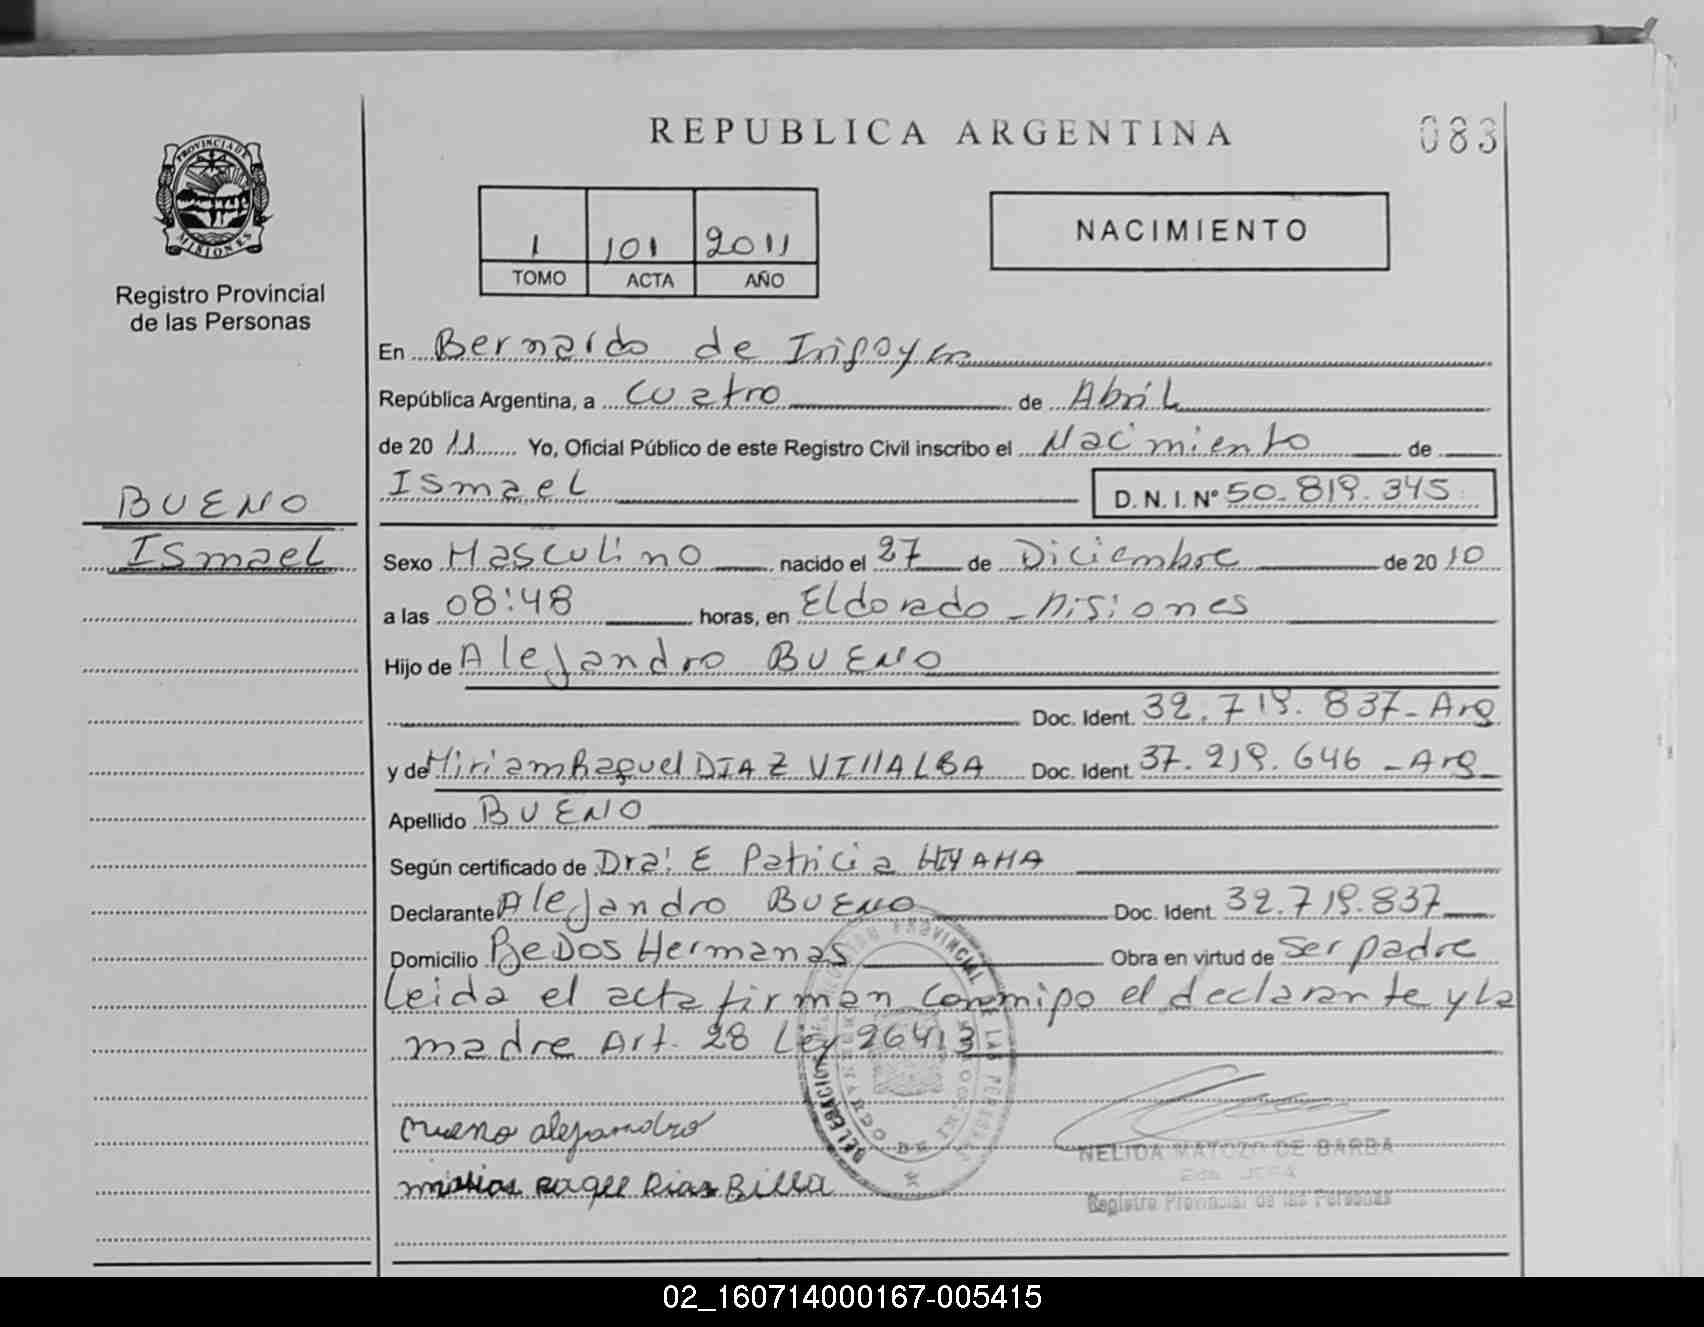 REPUBLICA ARGENTINA
083
PROVINCIA DE
MISIONES
Registro Provincial
de las Personas
1 101 2011
TOMO ACTA AÑO
NACIMIENTO
BUENO
Ismael
En Bernardo de Irigoyen
República Argentina, a cuatro de Abril
de 2011 Yo, Oficial Público de este Registro Civil inscribo el Nacimiento de
Ismael D. N. I. Nº 50.819.345
Sexo Masculino nacido el 27 de Diciembre de 2010
a las 08:48 horas, en Eldorado - Misiones
Hijo de Alejandro BUENO
Doc. Ident. 32.719.837 - Arg
y de Miriam Raquel DIAZ VIllALBA Doc. Ident. 37.219.646 - Arg
Apellido BUENO
Según certificado de Dra: E Patricia
Declarante Alejandro BUENO Doc. Ident. 32.719.837
Domicilio Be Dos Hermanas Obra en virtud de Ser padre
Leida el acta firman conmigo el declarante y la
madre Art. 28 Ley 26413
alejandro
NELIDA MATOZO DE BARBA
JEFA
Registro Provincial de las Personas
02_160714000167-005415